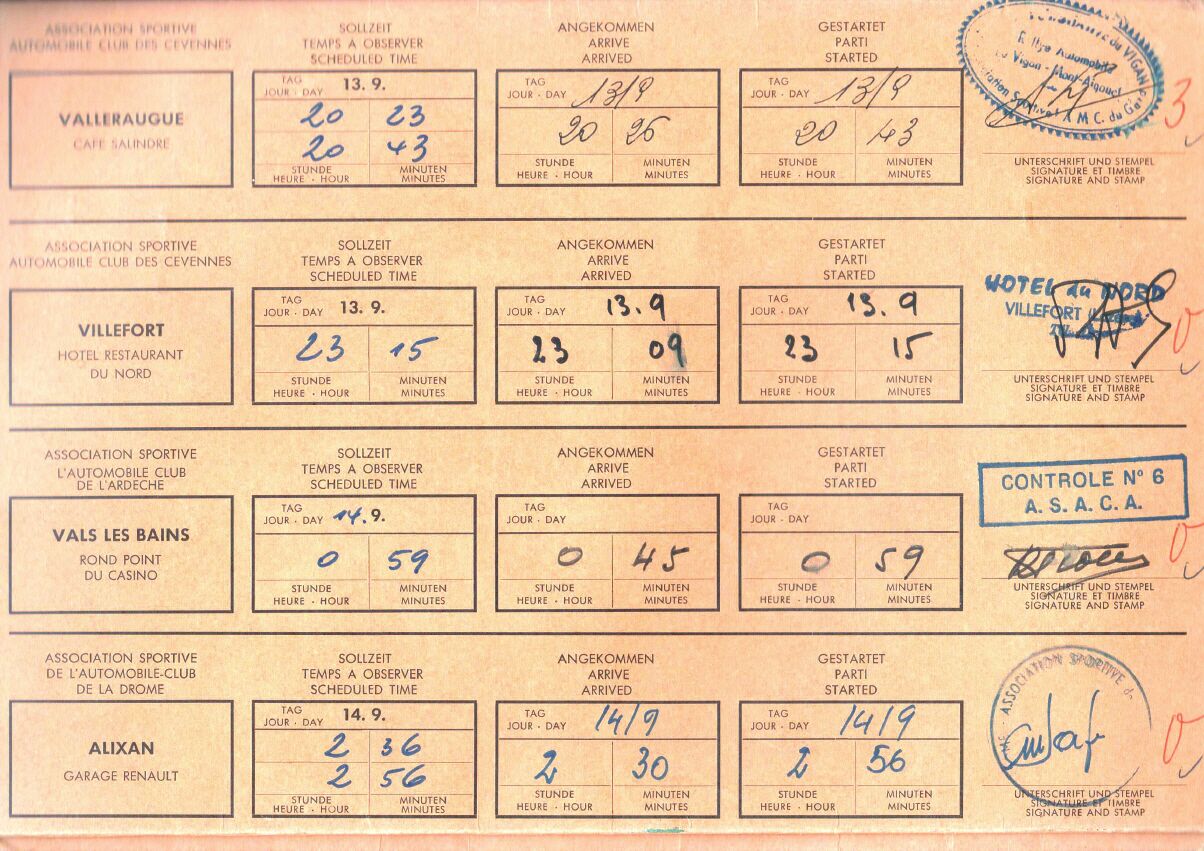 ASSOCIATION SPORTIVE
AUTOMOBILE CLUB DES CEVENNES
VALLERAUGUE
CAFE SALINDRE
SOLLZEIT
TEMPS A OBSERVER
SCHEDULED TIME
TAG
JOUR · DAY 13. 9.
20 23
20 43
STUNDE MINUTEN
HEURE · HOUR MINUTES
ANGEKOMMEN
ARRIVE
ARRIVED
TAG
JOUR · DAY 13/9
20 26
STUNDE MINUTEN
HEURE · HOUR MINUTES
GESTARTET
PARTI
STARTED
TAG
JOUR · DAY 13/9
20 43
STUNDE MINUTEN
HEURE · HOUR MINUTES
du VIGAN
Rallye Automobile
Le Vigan - Mont-Aigoual
Association Sportive A.M.C. du Gard
3
UNTERSCHRIFT UND STEMPEL
SIGNATURE ET TIMBRE
SIGNATURE AND STAMP
ASSOCIATION SPORTIVE
AUTOMOBILE CLUB DES CEVENNES
VILLEFORT
HOTEL RESTAURANT
DU NORD
SOLLZEIT
TEMPS A OBSERVER
SCHEDULED TIME
TAG
JOUR · DAY 13. 9.
23 15
STUNDE MINUTEN
HEURE · HOUR MINUTES
ANGEKOMMEN
ARRIVE
ARRIVED
TAG
JOUR · DAY 13.9
23 09
STUNDE MINUTEN
HEURE · HOUR MINUTES
GESTARTET
PARTI
STARTED
TAG
JOUR · DAY 13.9
23 15
STUNDE MINUTEN
HEURE · HOUR MINUTES
HOTEL du NORD
VILLEFORT
0
UNTERSCHRIFT UND STEMPEL
SIGNATURE ET TIMBRE
SIGNATURE AND STAMP
ASSOCIATION SPORTIVE
L'AUTOMOBILE CLUB
DE L'ARDECHE
VALS LES BAINS
ROND POINT
DU CASINO
SOLLZEIT
TEMPS A OBSERVER
SCHEDULED TIME
TAG
JOUR · DAY 14. 9.
0 59
STUNDE MINUTEN
HEURE · HOUR MINUTES
ANGEKOMMEN
ARRIVE
ARRIVED
TAG
JOUR · DAY
0 45
STUNDE MINUTEN
HEURE · HOUR MINUTES
GESTARTET
PARTI
STARTED
TAG
JOUR · DAY
0 59
STUNDE MINUTEN
HEURE · HOUR MINUTES
CONTROLE N° 6
A. S. A. C. A.
0
UNTERSCHRIFT UND STEMPEL
SIGNATURE ET TIMBRE
SIGNATURE AND STAMP
ASSOCIATION SPORTIVE
DE L'AUTOMOBILE-CLUB
DE LA DROME
ALIXAN
GARAGE RENAULT
SOLLZEIT
TEMPS A OBSERVER
SCHEDULED TIME
TAG
JOUR · DAY 14. 9.
2 36
2 56
STUNDE MINUTEN
HEURE · HOUR MINUTES
ANGEKOMMEN
ARRIVE
ARRIVED
TAG
JOUR · DAY 14/9
2 30
STUNDE MINUTEN
HEURE · HOUR MINUTES
GESTARTET
PARTI
STARTED
TAG
JOUR · DAY 14/9
2 56
STUNDE MINUTEN
HEURE · HOUR MINUTES
ASSOCIATION SPORTIVE de
0
UNTERSCHRIFT UND STEMPEL
SIGNATURE ET TIMBRE
SIGNATURE AND STAMP